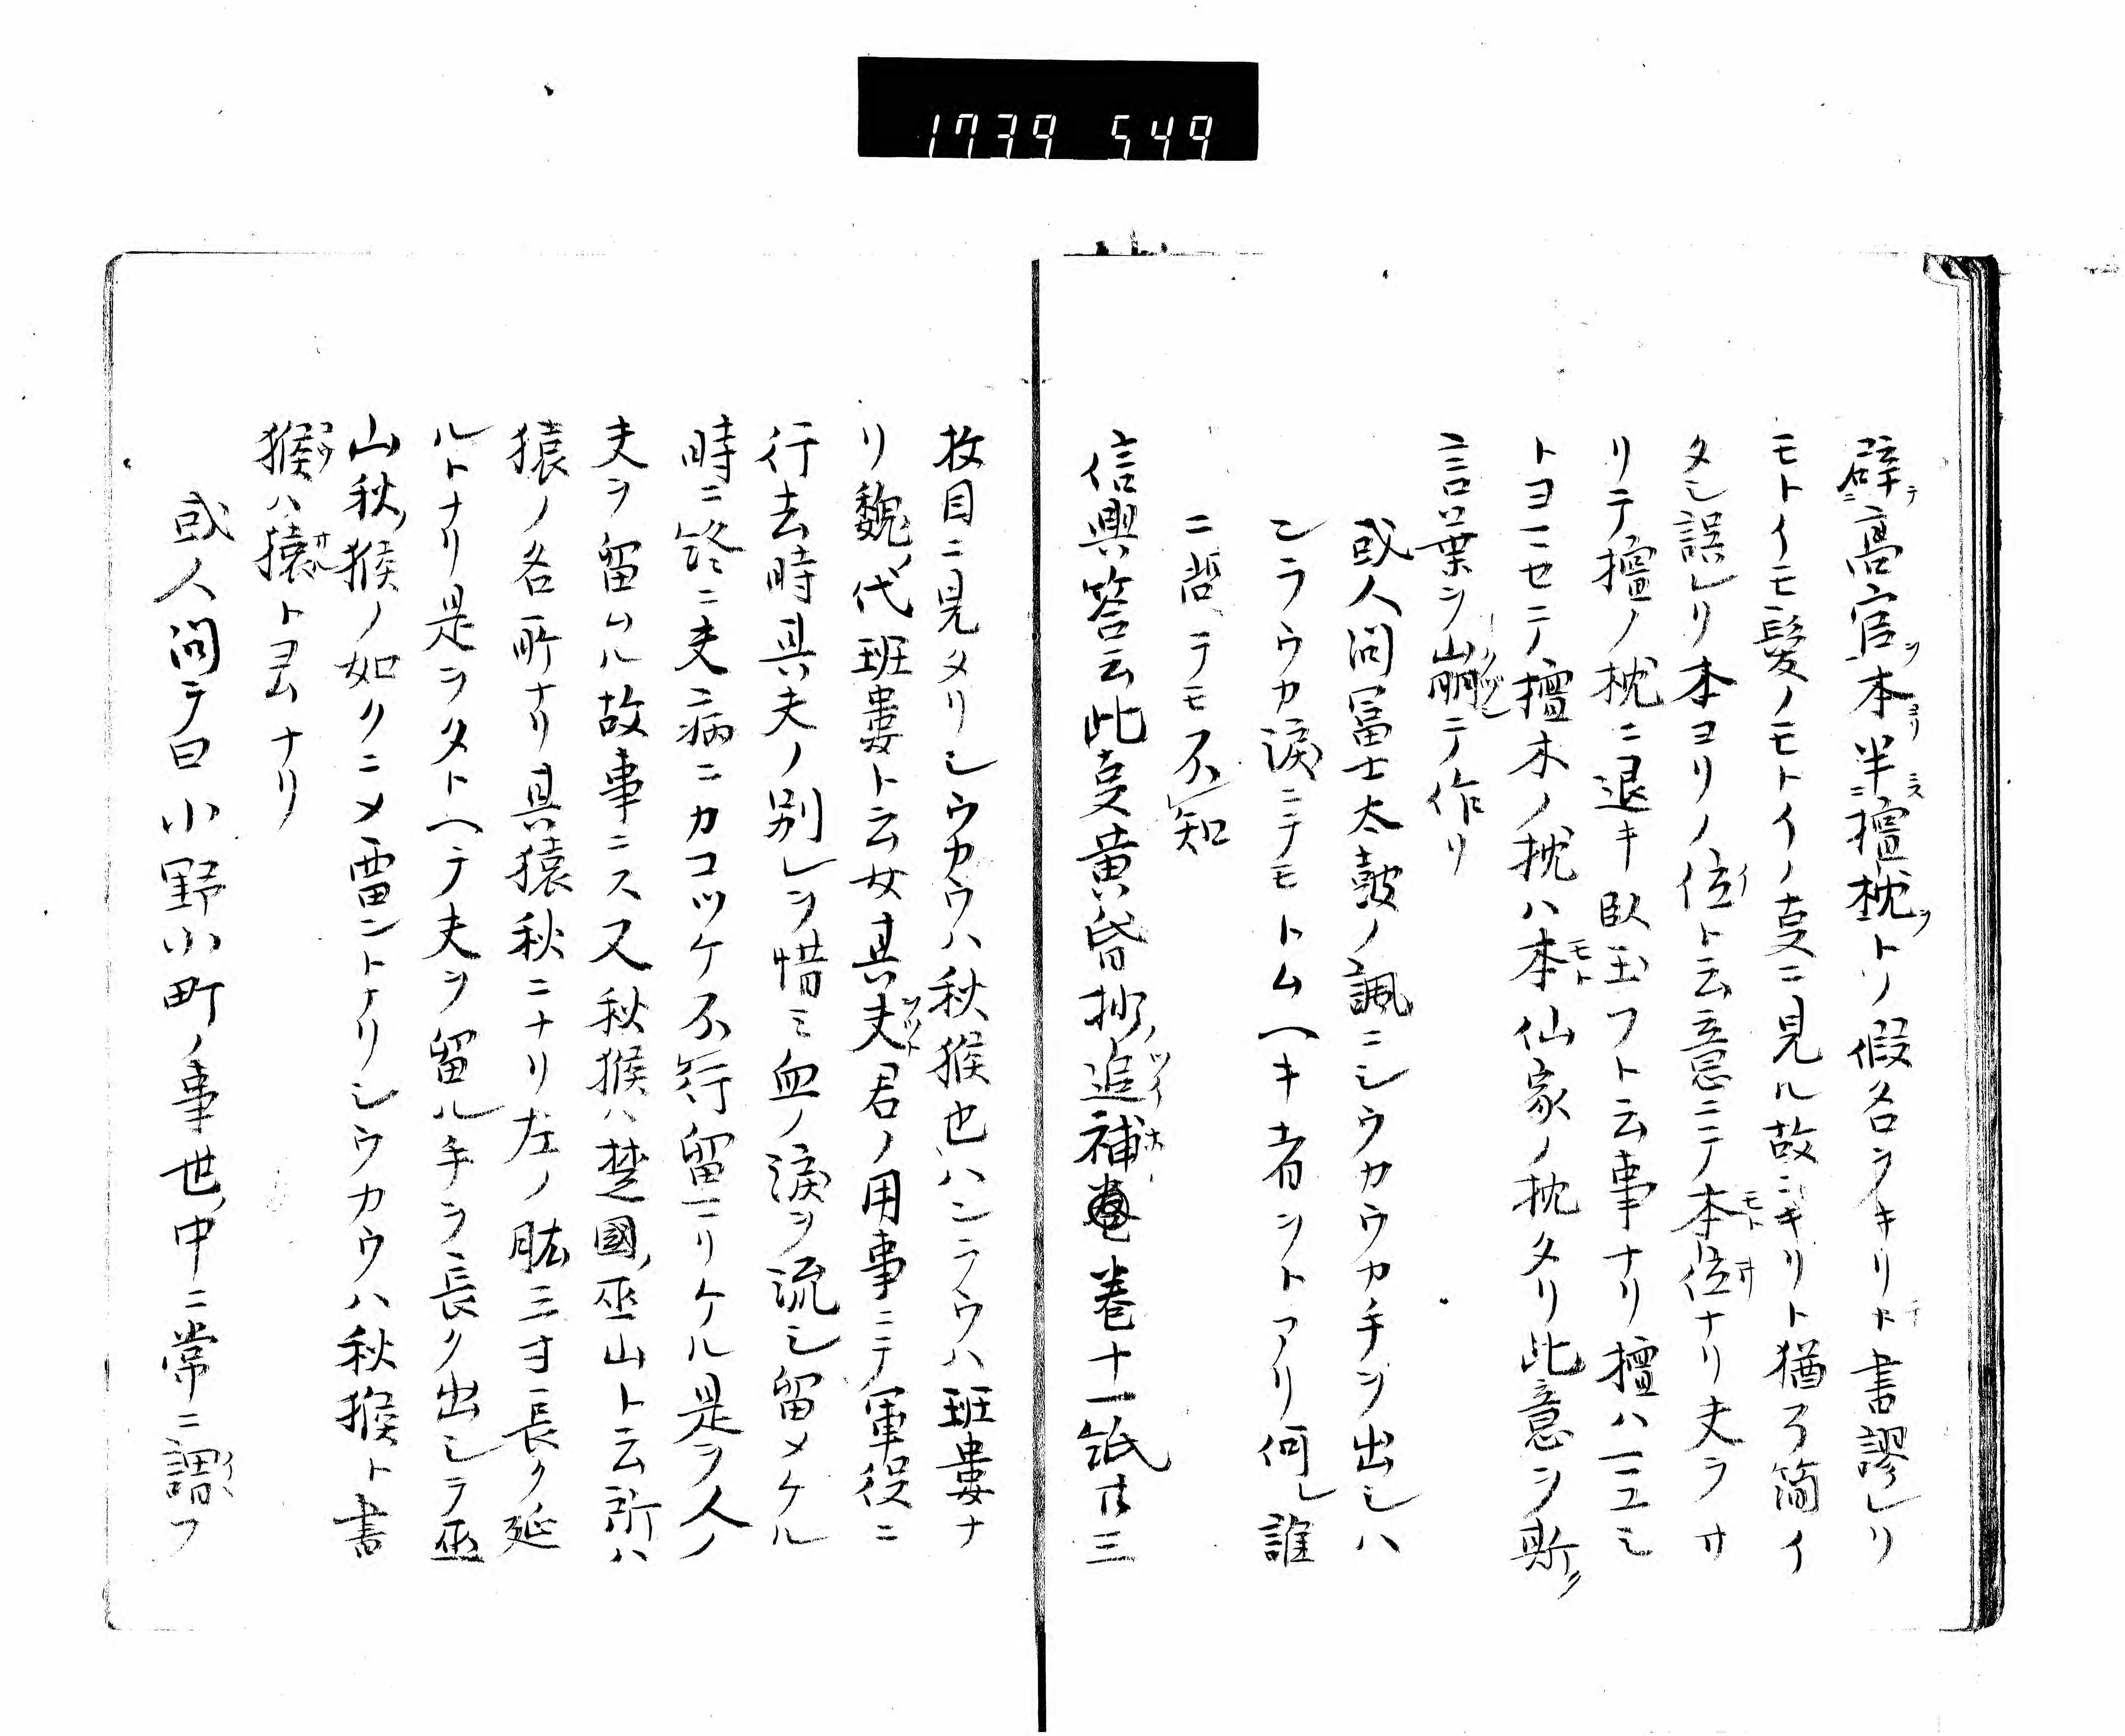 1739 549
辟テ高官ヲ本ヨリ半ニス檀枕ヲトソ假名ヲキリト書謬レリ
モトイモ髪ノモトイノ叓ニ見ル故ニキリト猶ヲ簡イ
タシ誤レリ本ヨリノ位イト云意ニテ本モト位ヰナリ夫ヲヰ
リテ檀ノ枕ニ退キ臥玉フト云事ナリ檀ハマユミ
トヨマセテ檀木ノ枕ハ本モト仙家ノ枕タリ此意ヲ斯ク
言葉ヲ崩クツシテ作リ
或人問冨士太鼓ノ諷ニシウカウカ手ヲ出シハ
ンラウカ涙ニテモトムヘキ者ントアリ何レ誰
ニ哉テモ不知
信興答云此叓黄昏抄ノ追ツイ補ホ巻十一紙廿三
枚目ニ見タリシウカウハ秋猴也ハンラウハ班婁ナ
リ魏ノ代班婁ト云女其夫ヲツト君ノ用事ニテ軍役ニ
行去時其夫ノ別レヲ惜ミ血ノ涙ヲ流シ留メケル
時ニ終ニ夫ニ病ニカコツケ不行留マリケル是ヲ人ノ
夫ヲ留ムル故事ニス又秋猴ハ楚國ノ巫山ト云所ハ
猿ノ名所ナリ其猿秋ニナリ左ノ肱三寸長ク延
ルトナリ是ヲタトヘテ夫ヲ留ル手ヲ長ク出シテ巫
山秋ノ猴ノ如クニメ畱ントナリシウカウハ秋猴ト書
猴コウハ猿サルトヨムナリ
或人問テ曰小野小町ノ事世ノ中ニ常ニ謂イヽフ